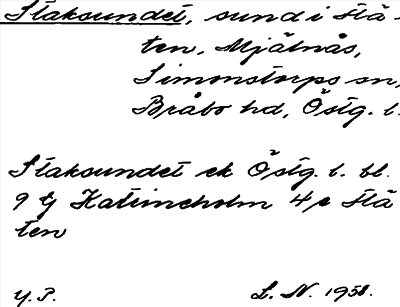 Flaksundet, sund i Flä-
ten, Mjälnås,
Simonstorps sn,
Bråbo hd, Östg. l.
Flaksundet ek Östg. l. bl.
9 G Katrineholm 4 s Flä
ten
Y. P. L. N. 1958.